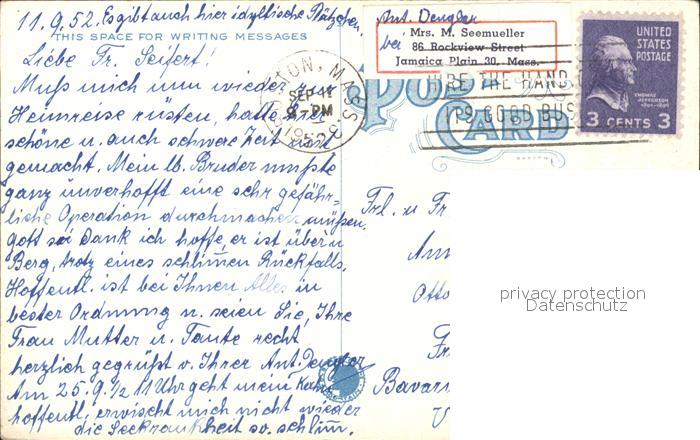 11.9.52. Es gibt auch hier idyllische Plätzchen.
THIS SPACE FOR WRITING MESSAGES
Liebe Fr. Seifert!
Muß mich nun wieder zur
Heimreise rüsten, hatte hier
schöne u. auch schwere Zeit mit
gemacht. Mein lb. Bruder mußte
ganz unverhofft eine sehr gefähr-
liche Operation durchmachen müßen,
gott sei Dank ich hoffe, er ist über'n
Berg, trotz eines schlimen Rückfalls.
Hoffentl. ist bei Ihnen Alles in
bester Ordnung u. seien Sie, Ihre
Frau Mutter u. Tante recht
herzlich gegrüßt v. Ihrer Ant. Dengler
Am 25.9. ½ 11 Uhr geht mein
hoffentl. erwischt mich nicht wieder
die Seekrankheit so schlim.
Ant. Dengler
bei
Mrs. M. Seemueller
86 Rockview Street
Jamaica Plain 30, Mass.
POST
CARD
MASS.
SEP 11
PM
1952
THE HAND
IS GOOD BUS
UNITED
STATES
POSTAGE
THOMAS
JEFFERSON
3 CENTS 3
Frl. u Fr
Otto
Fr
Bavar
privacy protection
Datenschutz